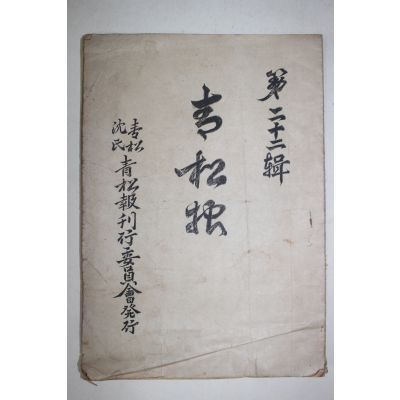 第二十二輯
青松報
青松
沈氏
青松報刊行委員會發行